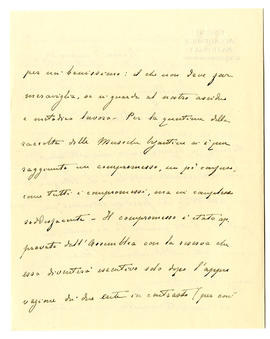 per un' benissimo: il che non deve far
meraviglia, se si guarda al nostro assiduo
e metodico lavoro - Per la questione della
raccolta delle Musiche bizantine si è pur
raggiunto un compromesso, un po' confuso,
come tutti i compromessi, ma in complesso
soddisfacente - Il compromesso è stato ap
provato dall'Assemblea con la riserva che
esso diventerà esecutivo solo dopo l'appro
vazione dei due enti in contrasto (per così